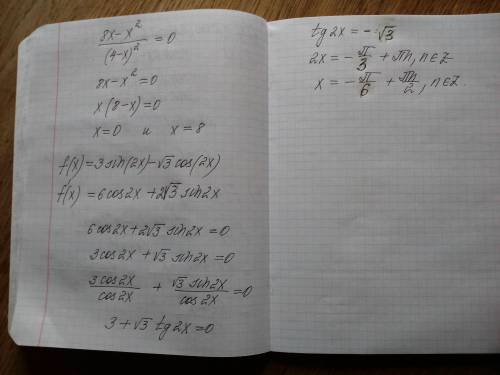 (8x-x²)/(4-x)² = 0
8x-x²=0
x(8-x)=0
x=0 и x=8
f(x)=3sin(2x)-√3 cos(2x)
f'(x)=6cos2x+2√3 sin2x
6cos2x+2√3 sin2x=0
3cos2x+√3 sin2x=0
3cos2x/cos2x + √3 sin2x/cos2x = 0
3+√3 tg2x=0
tg2x=-√3
2x=-π/3+πn, n∈Z
x=-π/6+πn/2, n∈Z.